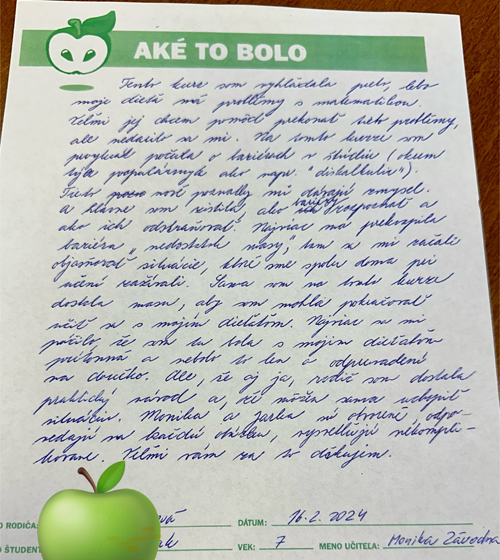 AKÉ TO BOLO
Tento kurz som vyhľadala preto, lebo
moje dieťa má problémy s matematikou.
Veľmi jej chcem pomôcť prekonať tieto problémy,
ale nedarilo sa mi. Na tomto kurze som
prvýkrát počula o bariérach v štúdiu (okrem
tých populárnych ako napr. "diskalkúlia").
Tieto nové poznatky mi dávajú zmysel.
A hlavne som zistila, ako bariéry rozpoznať a
ako ich odstraňovať. Najviac ma prekvapila
bariéra "nedostatok masy", tam sa mi začali
objasňovať situácie, ktoré sme spolu doma pri
učení zažívali. Sama som na tomto kurze
dostala masu, aby som mohla pokračovať
učiť sa s mojím dieťaťom. Najviac sa mi
páčilo že som tu bola s mojím dieťaťom
prítomná a nebolo to len o odprevadení
na doučko. Ale, že aj ja, rodič som dostala
praktický návod a, že môžem sama uchopiť
situáciu. Monika a Jarka sú otvorené, odpo-
vedajú na každú otázku, vysvetľujú nekompli-
kovane. Veľmi vám za to ďakujem.
O RODIČA: vá DÁTUM: 16.2.2024
O ŠTUDENT ak VEK: 7 MENO UČITEĽA: Monika Závodná